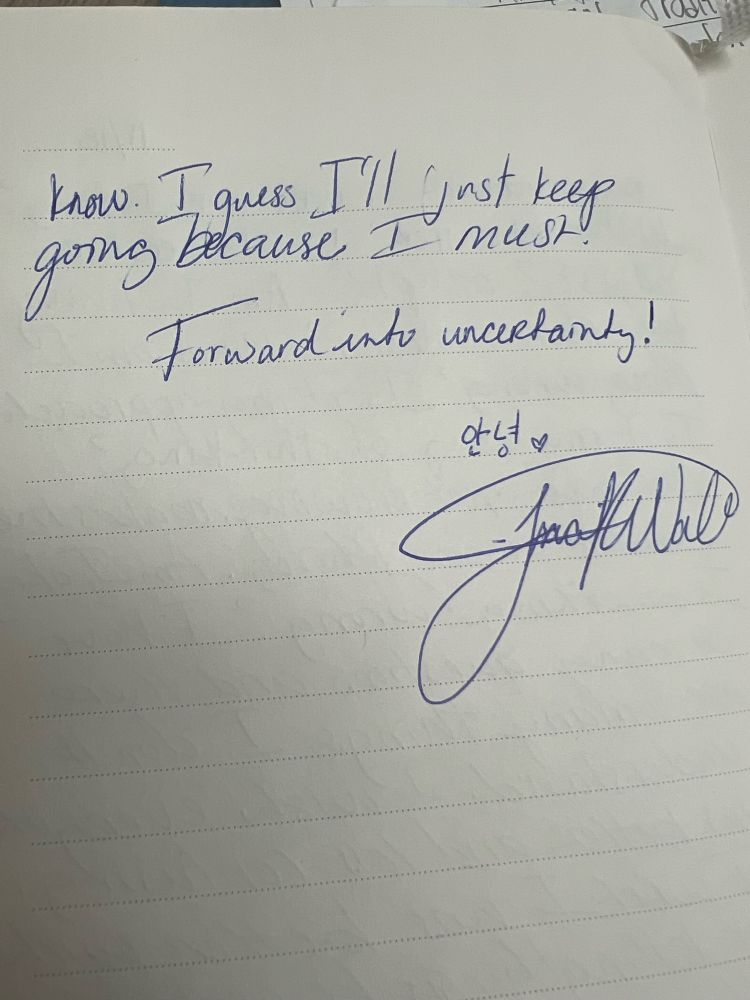 know. I guess I'll just keep
going because I must.
Forward into uncertainty!
안녕 ♡